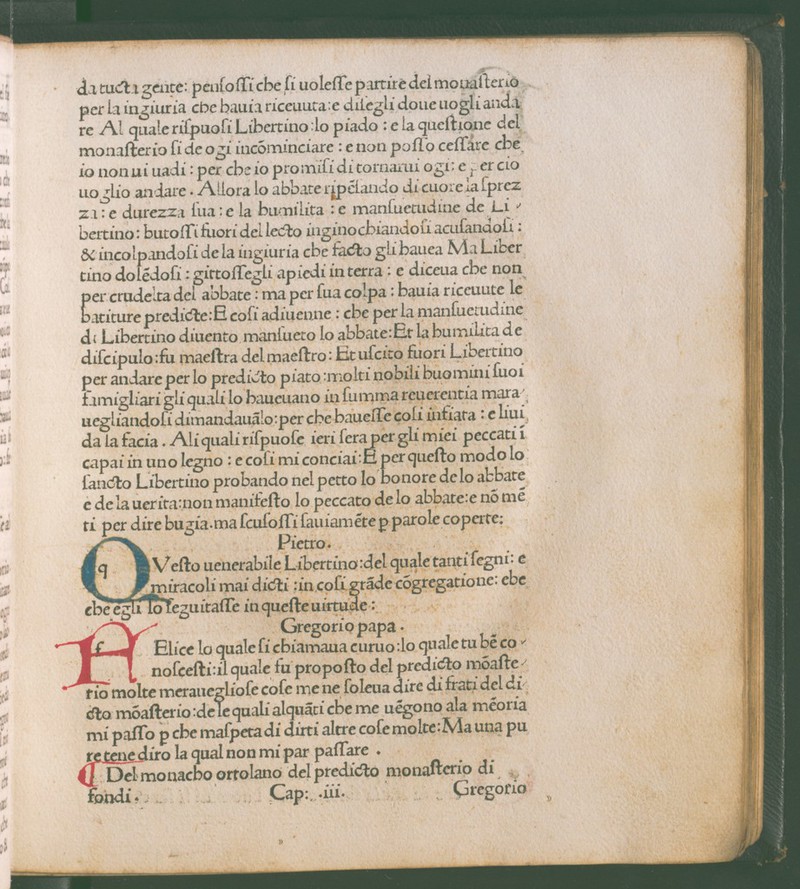 da tucta gente: penſoſſi che ſi uoleſſe partire del monaſterio
per la ingiuria che hauia riceuuta:e diſegli doue uogli anda
re Al quale riſpuoſi Libertino:lo piado : e la queſtione del
monaſterio ſi de ogi incōminciare : e non poſſo ceſſare che
io non ui uadi : per che io promiſi di tornarui ogi: e per cio
uoglio andare . Allora lo abbate ripēſando di cuore la ſprez
za: e durezza ſua : e la humilita : e manſuetudine de Li
bertino: butoſſi fuori del lecto inginochiandoſi acuſandoſi :
& incolpandoſi de la ingiuria che facto gli hauea Ma Liber
tino dolēdoſi : gittoſſegli a piedi in terra : e diceua che non
per crudelta del abbate : ma per ſua colpa : hauia riceuute le
batiture predicte:E coſi adiuenne : che per la manſuetudine
di Libertino diuento manſueto lo abbate:Et la humilita de
diſcipulo:fu maeſtra del maeſtro: Et uſcito fuori Libertino
per andare per lo predicto piato:molti nobili huomini ſuoi
famigliari gli quali lo haueuano in ſumma reuerentia mara
uegliandoſi dimandauālo:per che haueſſe coſi infiata : e liui
da la facia . Ali quali riſpuoſe ieri ſera per gli miei peccati ī
capai in uno legno : e coſi mi conciai:E per queſto modo lo
ſancto Libertino probando nel petto lo honore de lo abbate
e de la uerita:non manifeſto lo peccato de lo abbate:e nō mē
ti per dire bugia.ma ſcuſoſſi ſauiamēte ꝑ parole coperte:
Pietro.
QVeſto uenerabile Libertino:del quale tanti ſegni: e
miracoli mai dicti :in coſi grāde cōgregatione: ebe
che egli lo ſeguitaſſe in queſte uirtude :
Gregorio papa .
FElice lo quale ſi chiamaua curuo:lo quale tu bē co
noſceſti:il quale fu propoſto del predicto mōaſte
rio molte merauegliоſe coſe me ne ſoleua dire di frati del di
cto mōaſterio:de le quali alquāti che me uēgono ala mēoria
mi paſſo ꝑ che maſpeta di dirti altre coſe molte:Ma una pu
re tene diro la qual non mi par paſſare .
¶ Del monacho ortolano del predicto monaſterio di
fondi . Cap: .iii. Gregorio